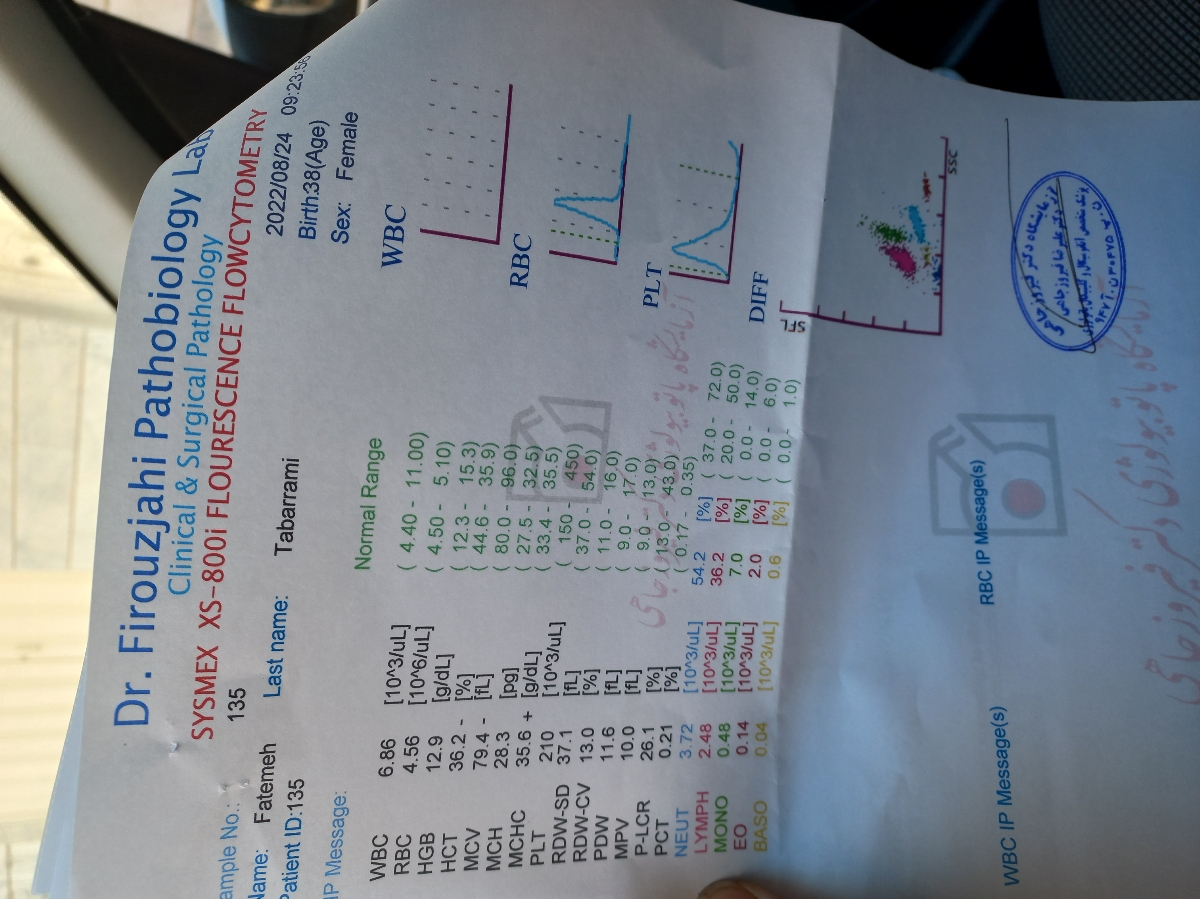 Dr. Firouzjahi Pathobiology Lab
Clinical & Surgical Pathology
SYSMEX XS-800i FLOURESCENCE FLOWCYTOMETRY
ample No.: 135 2022/08/24 09:23:56
Name: Fatemeh Last name: Tabarrami Birth:38(Age)
Patient ID:135 Sex: Female
IP Message:
Normal Range
WBC 6.86 [10^3/uL] ( 4.40 - 11.00)
RBC 4.56 [10^6/uL] ( 4.50 - 5.10)
HGB 12.9 [g/dL] ( 12.3 - 15.3)
HCT 36.2 - [%] ( 44.6 - 35.9)
MCV 79.4 - [fL] ( 80.0 - 96.0)
MCH 28.3 [pg] ( 27.5 - 32.5)
MCHC 35.6 + [g/dL] ( 33.4 - 35.5)
PLT 210 [10^3/uL] ( 150 - 450)
RDW-SD 37.1 [fL] ( 37.0 - 54.0)
RDW-CV 13.0 [%] ( 11.0 - 16.0)
PDW 11.6 [fL] ( 9.0 - 17.0)
MPV 10.0 [fL] ( 9.0 - 13.0)
P-LCR 26.1 [%] ( 13.0 - 43.0)
PCT 0.21 [%] ( 0.17 - 0.35)
NEUT 3.72 [10^3/uL] 54.2 [%] ( 37.0 - 72.0)
LYMPH 2.48 [10^3/uL] 36.2 [%] ( 20.0 - 50.0)
MONO 0.48 [10^3/uL] 7.0 [%] ( 0.0 - 14.0)
EO 0.14 [10^3/uL] 2.0 [%] ( 0.0 - 6.0)
BASO 0.04 [10^3/uL] 0.6 [%] ( 0.0 - 1.0)
WBC
RBC
PLT
DIFF
SFL
SSC
WBC IP Message(s) RBC IP Message(s)
آزمایشگاه پاتوبیولوژی دکتر فیروزجاهی
آزمایشگاه پاتوبیولوژی دکتر فیروزجاهی
آزمایشگاه دکتر فیروزجاهی